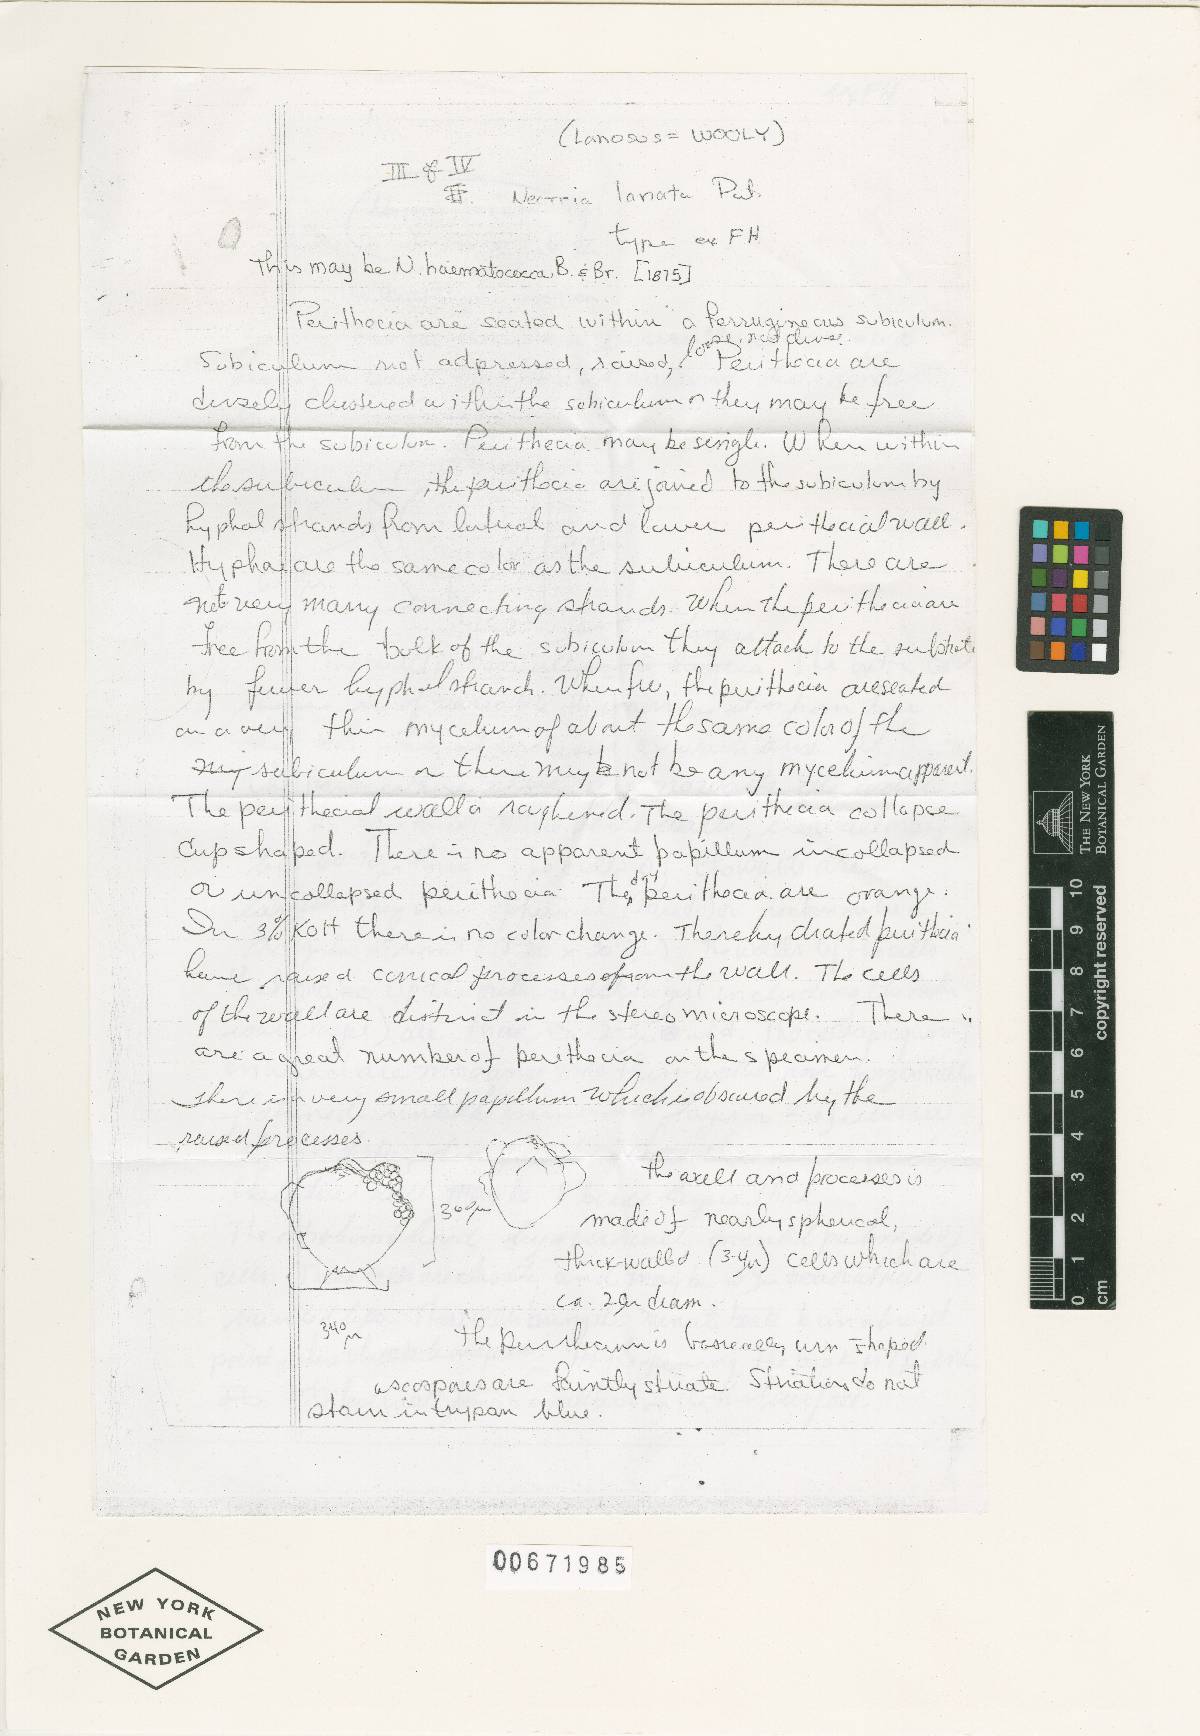 (Lanosus = WOOLY)
III of IV
II. Nectria lanata Pat.
type ex FH
This may be N. haematococca B. & Br. [1875]
Perithecia are seated within a ferrugineous subiculum.
loose, not dense.
Subiculum not adpressed, raised, Perithecia are
densely clustered within the subiculum or they may be free
from the subiculum. Perithecia may be single. When within
the subiculum, the perithecia are joined to the subiculum by
hyphal strands from lateral and lower perithecial wall.
Hyphae are the same color as the subiculum. There are
not very many connecting strands. When the perithecia are
free from the bulk of the subiculum they attach to the substrate
by fewer hyphal strands. When free, the perithecia are seated
on a very thin mycelium of about the same color of the
my subiculum or there may be not be any mycelium apparent.
The perithecial wall is roughened. The perithecia collapse
cup shaped. There is no apparent papillum in collapsed
or uncollapsed perithecia. The dry perithecia are orange.
In 3% KOH there is no color change. The rehydrated perithecia
have raised conical processes from the wall. The cells
of the wall are distinct in the stereo microscope. There
are a great number of perithecia on the specimen.
There is a very small papillum which is obscured by the
raised processes.
360µ
the wall and processes is
made of nearly spherical,
thick-walled (3-4µ) cells which are
ca. 20µ diam.
340µ
the perithecium is basically urn shaped
ascospores are faintly striate. Striations do not
stain in trypan blue.
00671985
NEW YORK
BOTANICAL
GARDEN
THE NEW YORK
BOTANICAL GARDEN
copyright reserved
10
9
8
7
6
5
4
3
2
1
0
cm